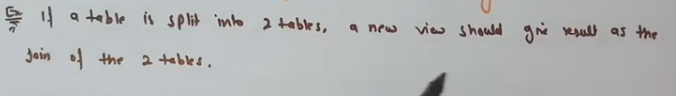 Ex If a table is split into 2 tables, a new view should give result as the
Join of the 2 tables.